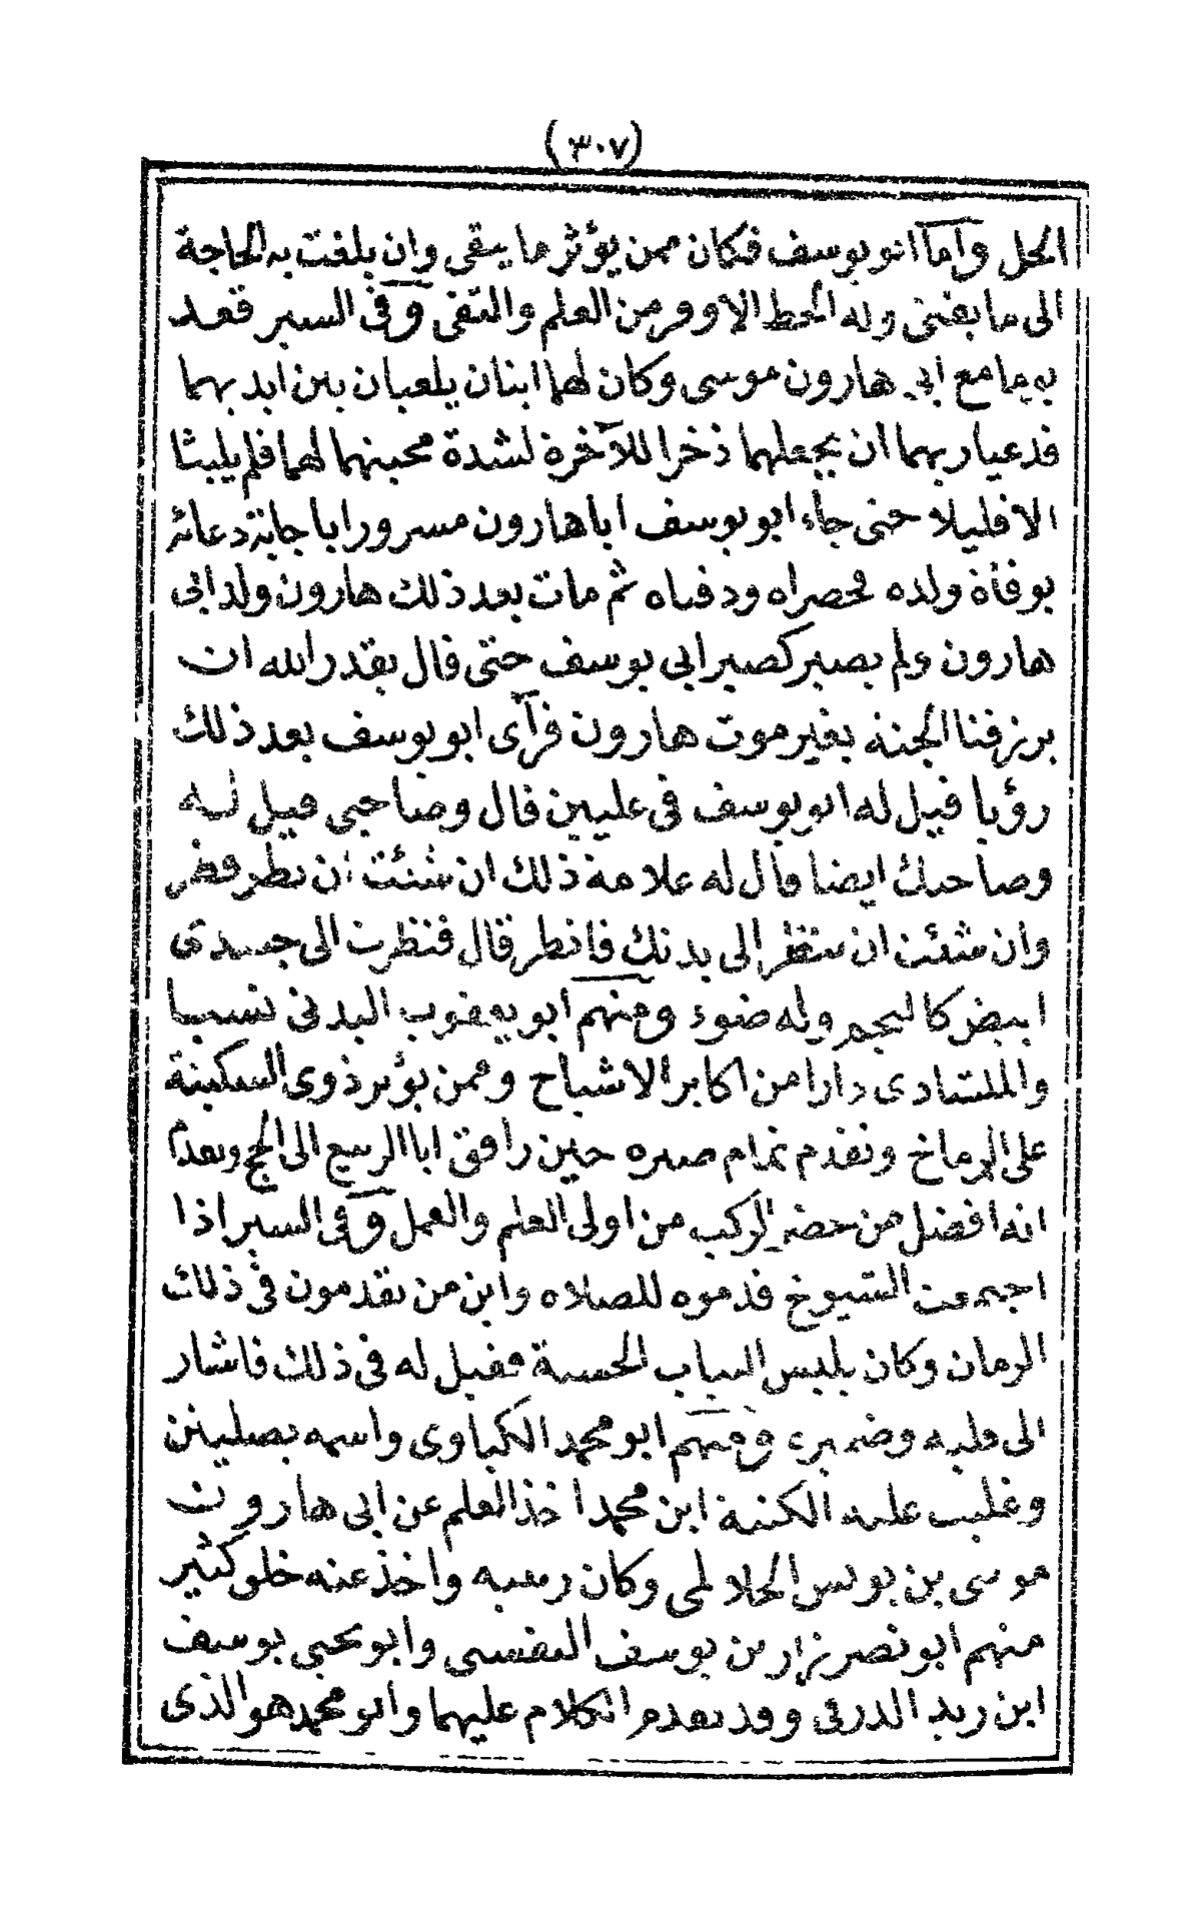 (٣٠٧)
الجل وأما ابو يوسف فكان ممن يؤثر ما يبقى وان بلغت به الحاجة
الى ما يفنى وله الحظ الاوفر من العلم والتقى وفى السير قعد
يوما مع ابى هارون موسى وكان لهما ابنان يلعبان بين ايديهما
فدعيا ربهما ان يجعلهما ذخرا للآخرة لشدة محبتهما لهما فلم يلبثا
الا قليلا حتى جاء ابو يوسف ابا هارون مسرورا باجابة دعائه
بوفاة ولده فحضراه ودفناه ثم مات بعد ذلك هارون ولد ابى
هارون ولم يصبر كصبر ابى يوسف حتى قال يقدر الله ان
يرزقنا الجنة بغير موت هارون فرآى ابو يوسف بعد ذلك
رؤيا قيل له ابو يوسف فى عليين قال وصاحبى قيل له
وصاحبك ايضا قال له علامة ذلك ان شئت ان تنظر فنظر
وان شئت ان تنظر الى بدنك فانظر قال فنظرت الى جسدى
ابيض كالنجم وله ضوء ومنهم ابو يعقوب البدنى نسبا
والملتسادى دارا من اكابر الاشياخ وممن يؤثر ذوى السكينة
على المرماخ وتقدم تمام صبره حين رافق ابا الربيع الى الحج وتعدم
انه افضل من حضر الركب من اولى العلم والعمل وفى السير اذا
اجتمعت الشيوخ قدموه للصلاه وابن من يقدمون فى ذلك
الزمان وكان يلبس الثياب الحسنة فقيل له فى ذلك فاشار
الى قلبه وضميره ومنهم ابو محمد الكباوى واسمه يصليتن
وغلبت عليه الكنية ابن محمد اخذ العلم عن ابى هارون
موسى بن يونس الجلالمى وكان رفيقه واخذ عنه خلق كثير
منهم ابو نصر زار بن يوسف التفستى وابو يحيى يوسف
ابن زيد الدرفى وقد تقدم الكلام عليهما وابو محمد هو الذى